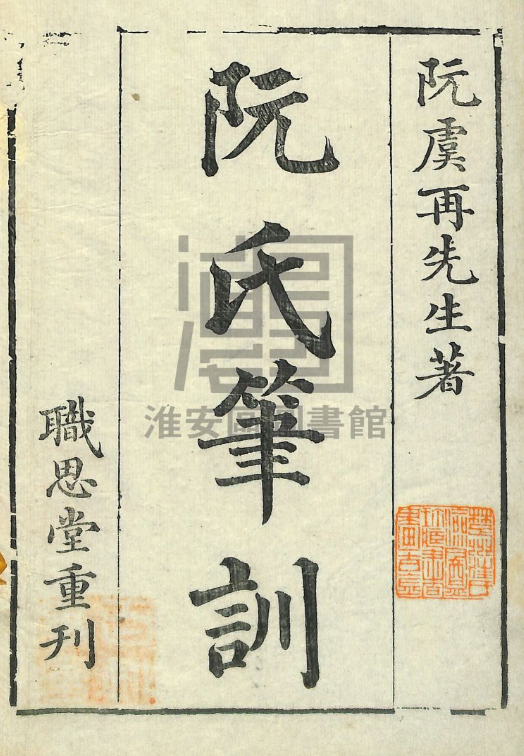 阮虞再先生著
阮氏筆訓
職思堂重刊
淮安區圖書館